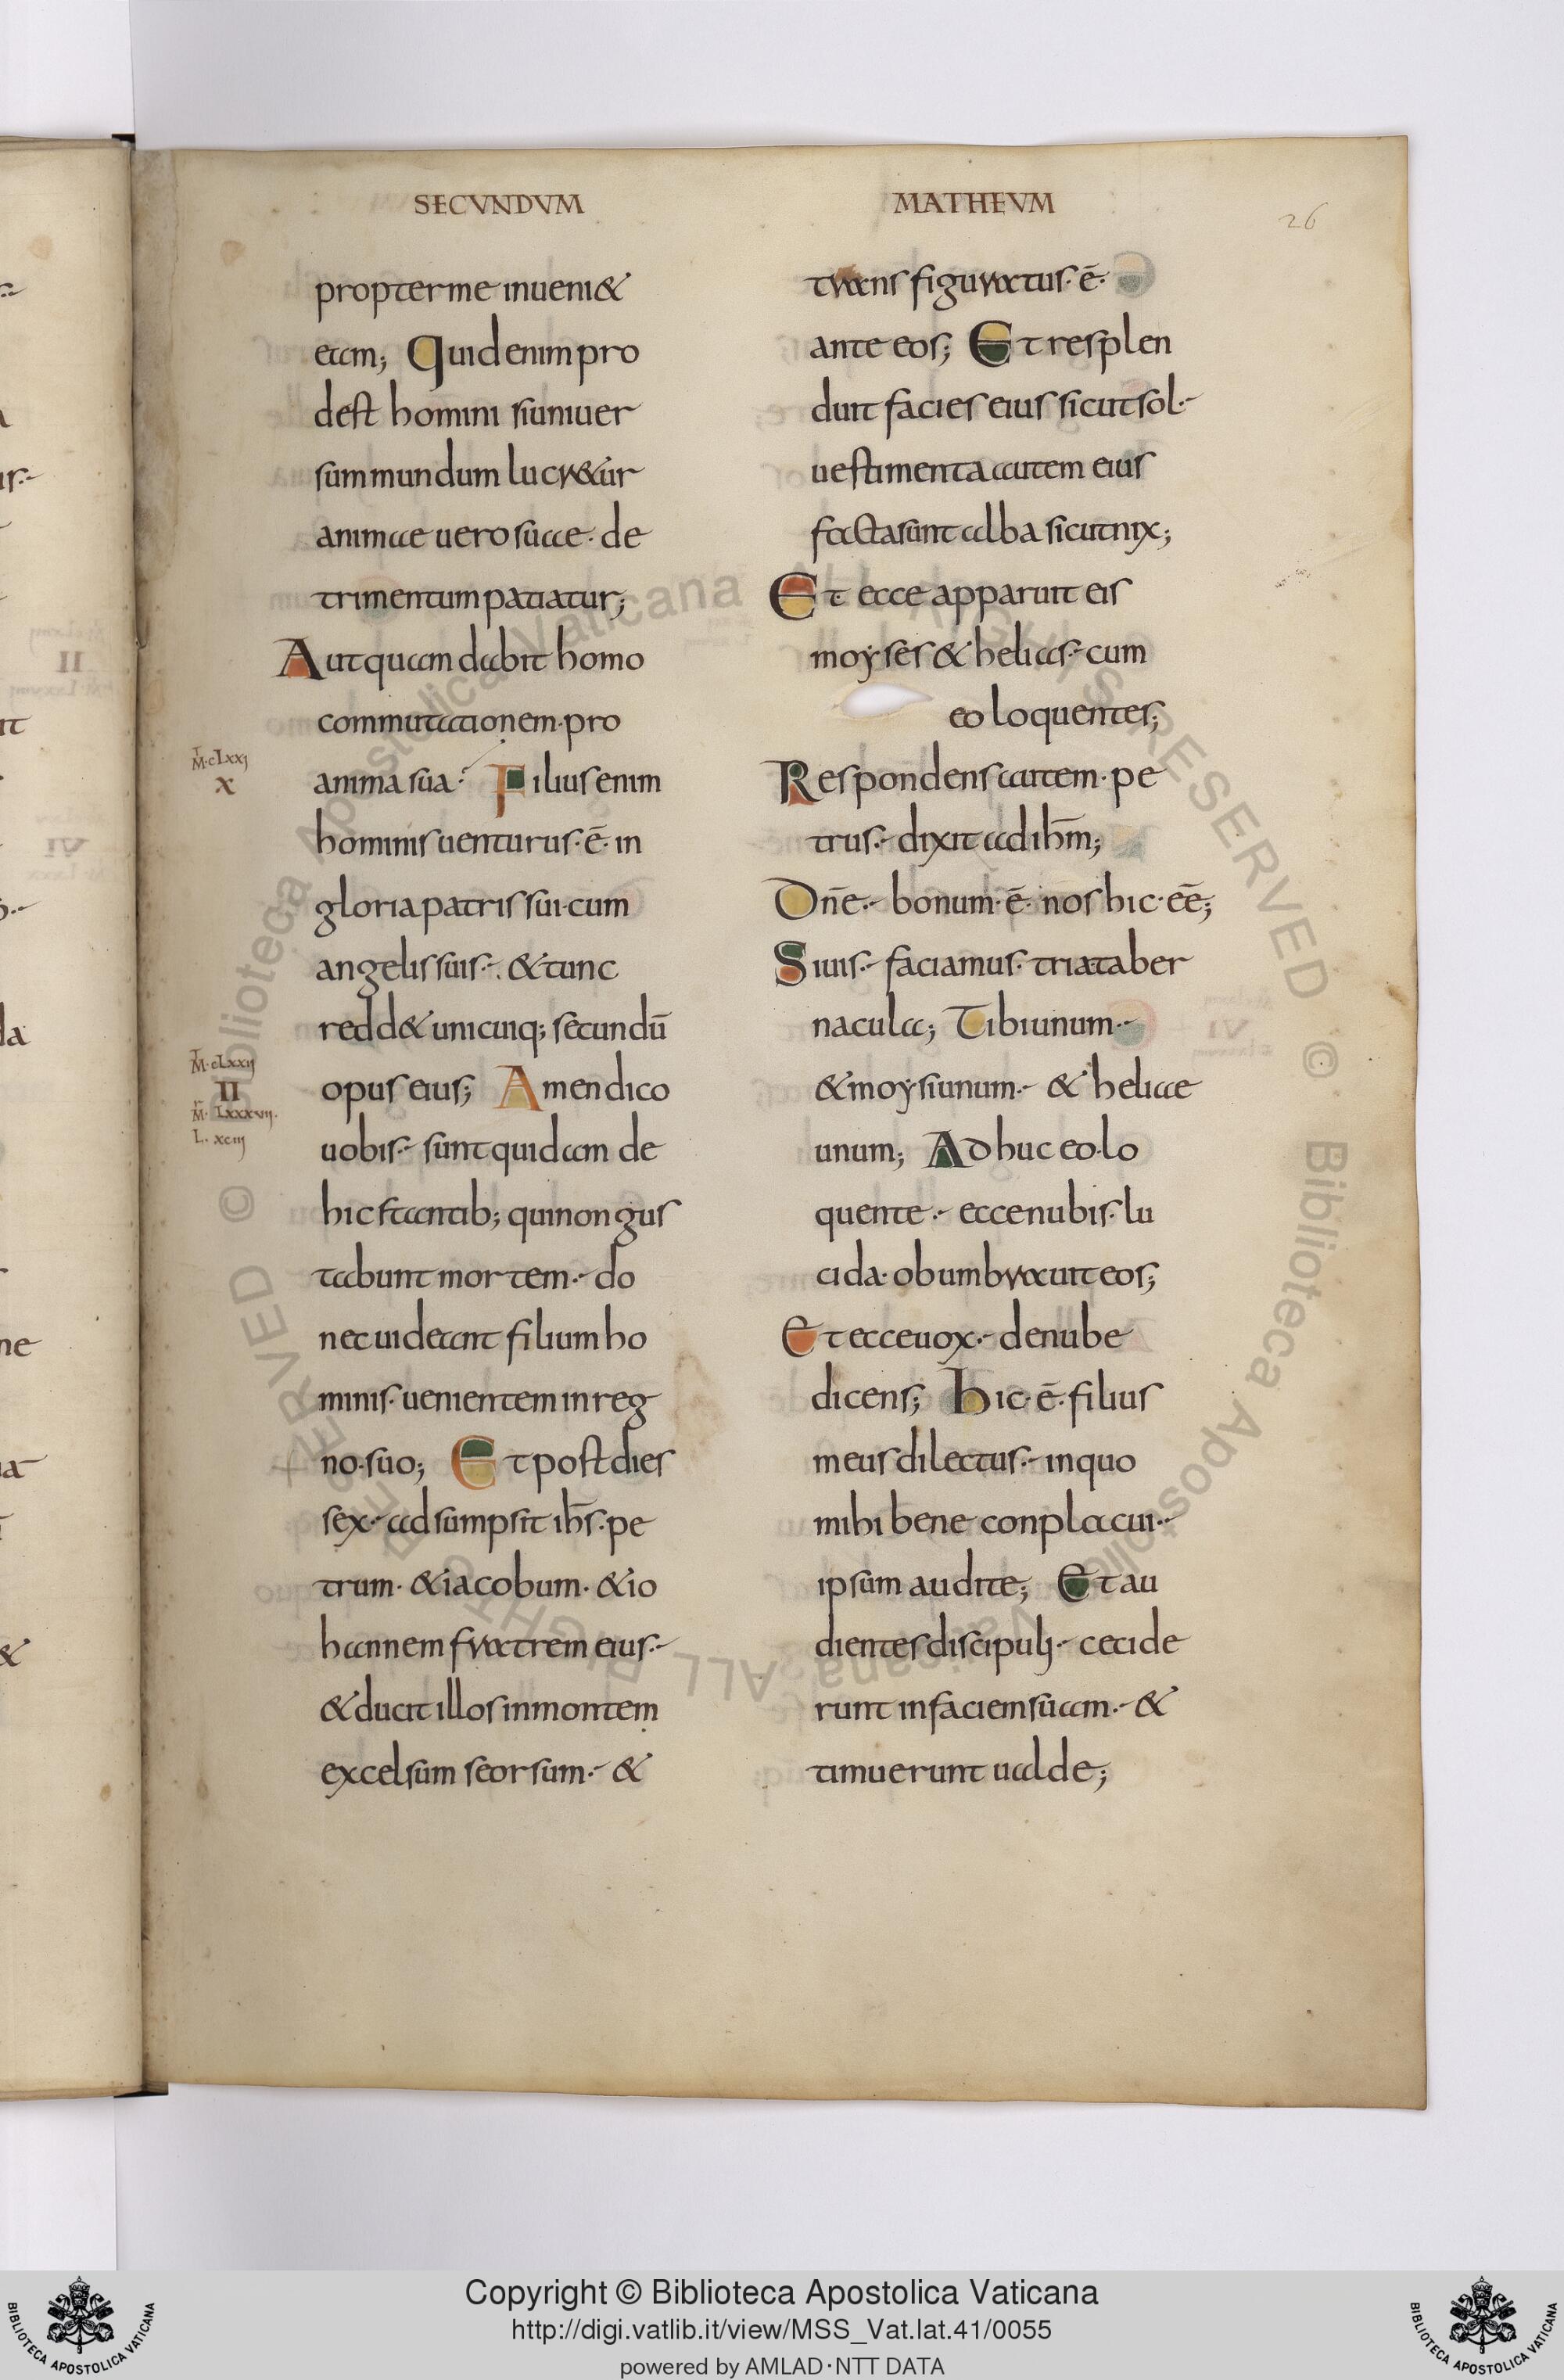 SECVNDVM
MATHEVM
26
propter me inueni&
eam; Quid enim pro
dest homini si uniuer
sum mundum lucr&ur
animae uero suae· de
trimentum patiatur;
Aut quam dabit homo
commutationem· pro
anima sua· Filius enim
hominis uenturus· ē· in
gloria patris sui· cum
angelis suis·- &tunc
redd& unicuiq; secundū
opus eius; Amen dico
uobis·- sunt quidam de
hic stantib; qui non gus
tabunt mortem·- do
nec uideant filium ho
minis· uenientem in reg
no· suo; Et post dies
sex·- adsumpsit ihs̄· pe
trum· &iacobum· &io
hannem fratrem eius·-
&ducit illos in montem
excelsum seorsum·- &
M·cLxxj
X
M·cLxxij
II
M· Lxxxvij·
L· xciij
transfiguratus· ē·
ante eos; Et resplen
duit facies eius sicut sol·-
uestimenta autem eius
facta sunt alba sicut nix;
Et ecce apparuit eis
moyses & helias·- cum
eo loquentes;
Respondens autem· pe
trus·- dixit ad ihm̄;
Dn̄e·- bonum· ē· nos hic· eē;
Si uis·- faciamus· tria taber
nacula; Tibi unum·-
&moysi unum·- & heliae
unum; Adhuc eo· lo
quente·- ecce nubis· lu
cida· obumbrauit eos;
Et ecce uox·- de nube
dicens; Hic· ē· filius
meus dilectus·- in quo
mihi bene conplacui·-
ipsum audite; Et au
dientes discipulj·- cecide
runt in faciem suam·- &
timuerunt ualde;
Copyright © Biblioteca Apostolica Vaticana
http://digi.vatlib.it/view/MSS_Vat.lat.41/0055
powered by AMLAD·NTT DATA
BIBLIOTECA APOSTOLICA VATICANA
BIBLIOTECA APOSTOLICA VATICANA